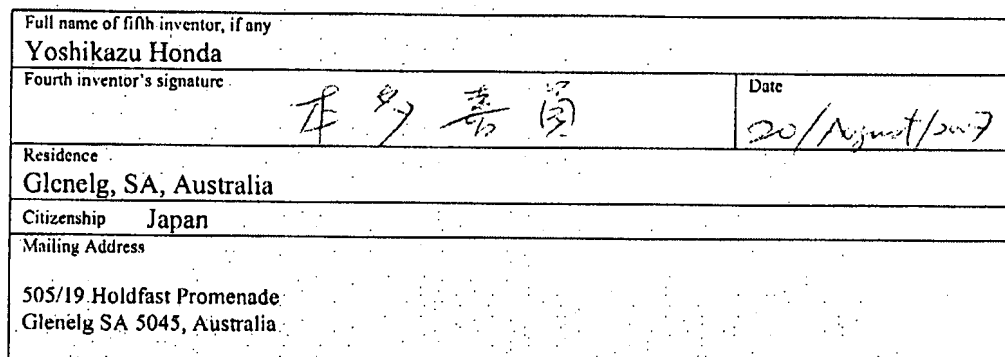 Full name of fifth inventor, if any
Yoshikazu Honda
Fourth inventor's signature
本多嘉員
Date
20/August/2007
Residence
Glenelg, SA, Australia
Citizenship Japan
Mailing Address
505/19 Holdfast Promenade
Glenelg SA 5045, Australia